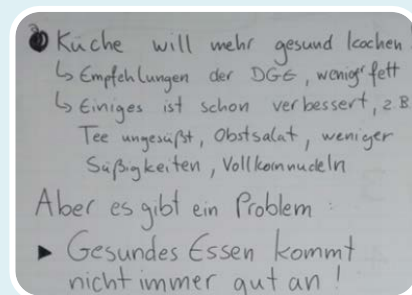 Küche will mehr gesund kochen
↳ Empfehlungen der DGE, wenig fett
↳ Einiges ist schon verbessert, z.B
Tee ungesüßt, Obstsalat, weniger
Süßigkeiten, Vollkornnudeln
Aber es gibt ein Problem :
► Gesundes Essen kommt
nicht immer gut an !